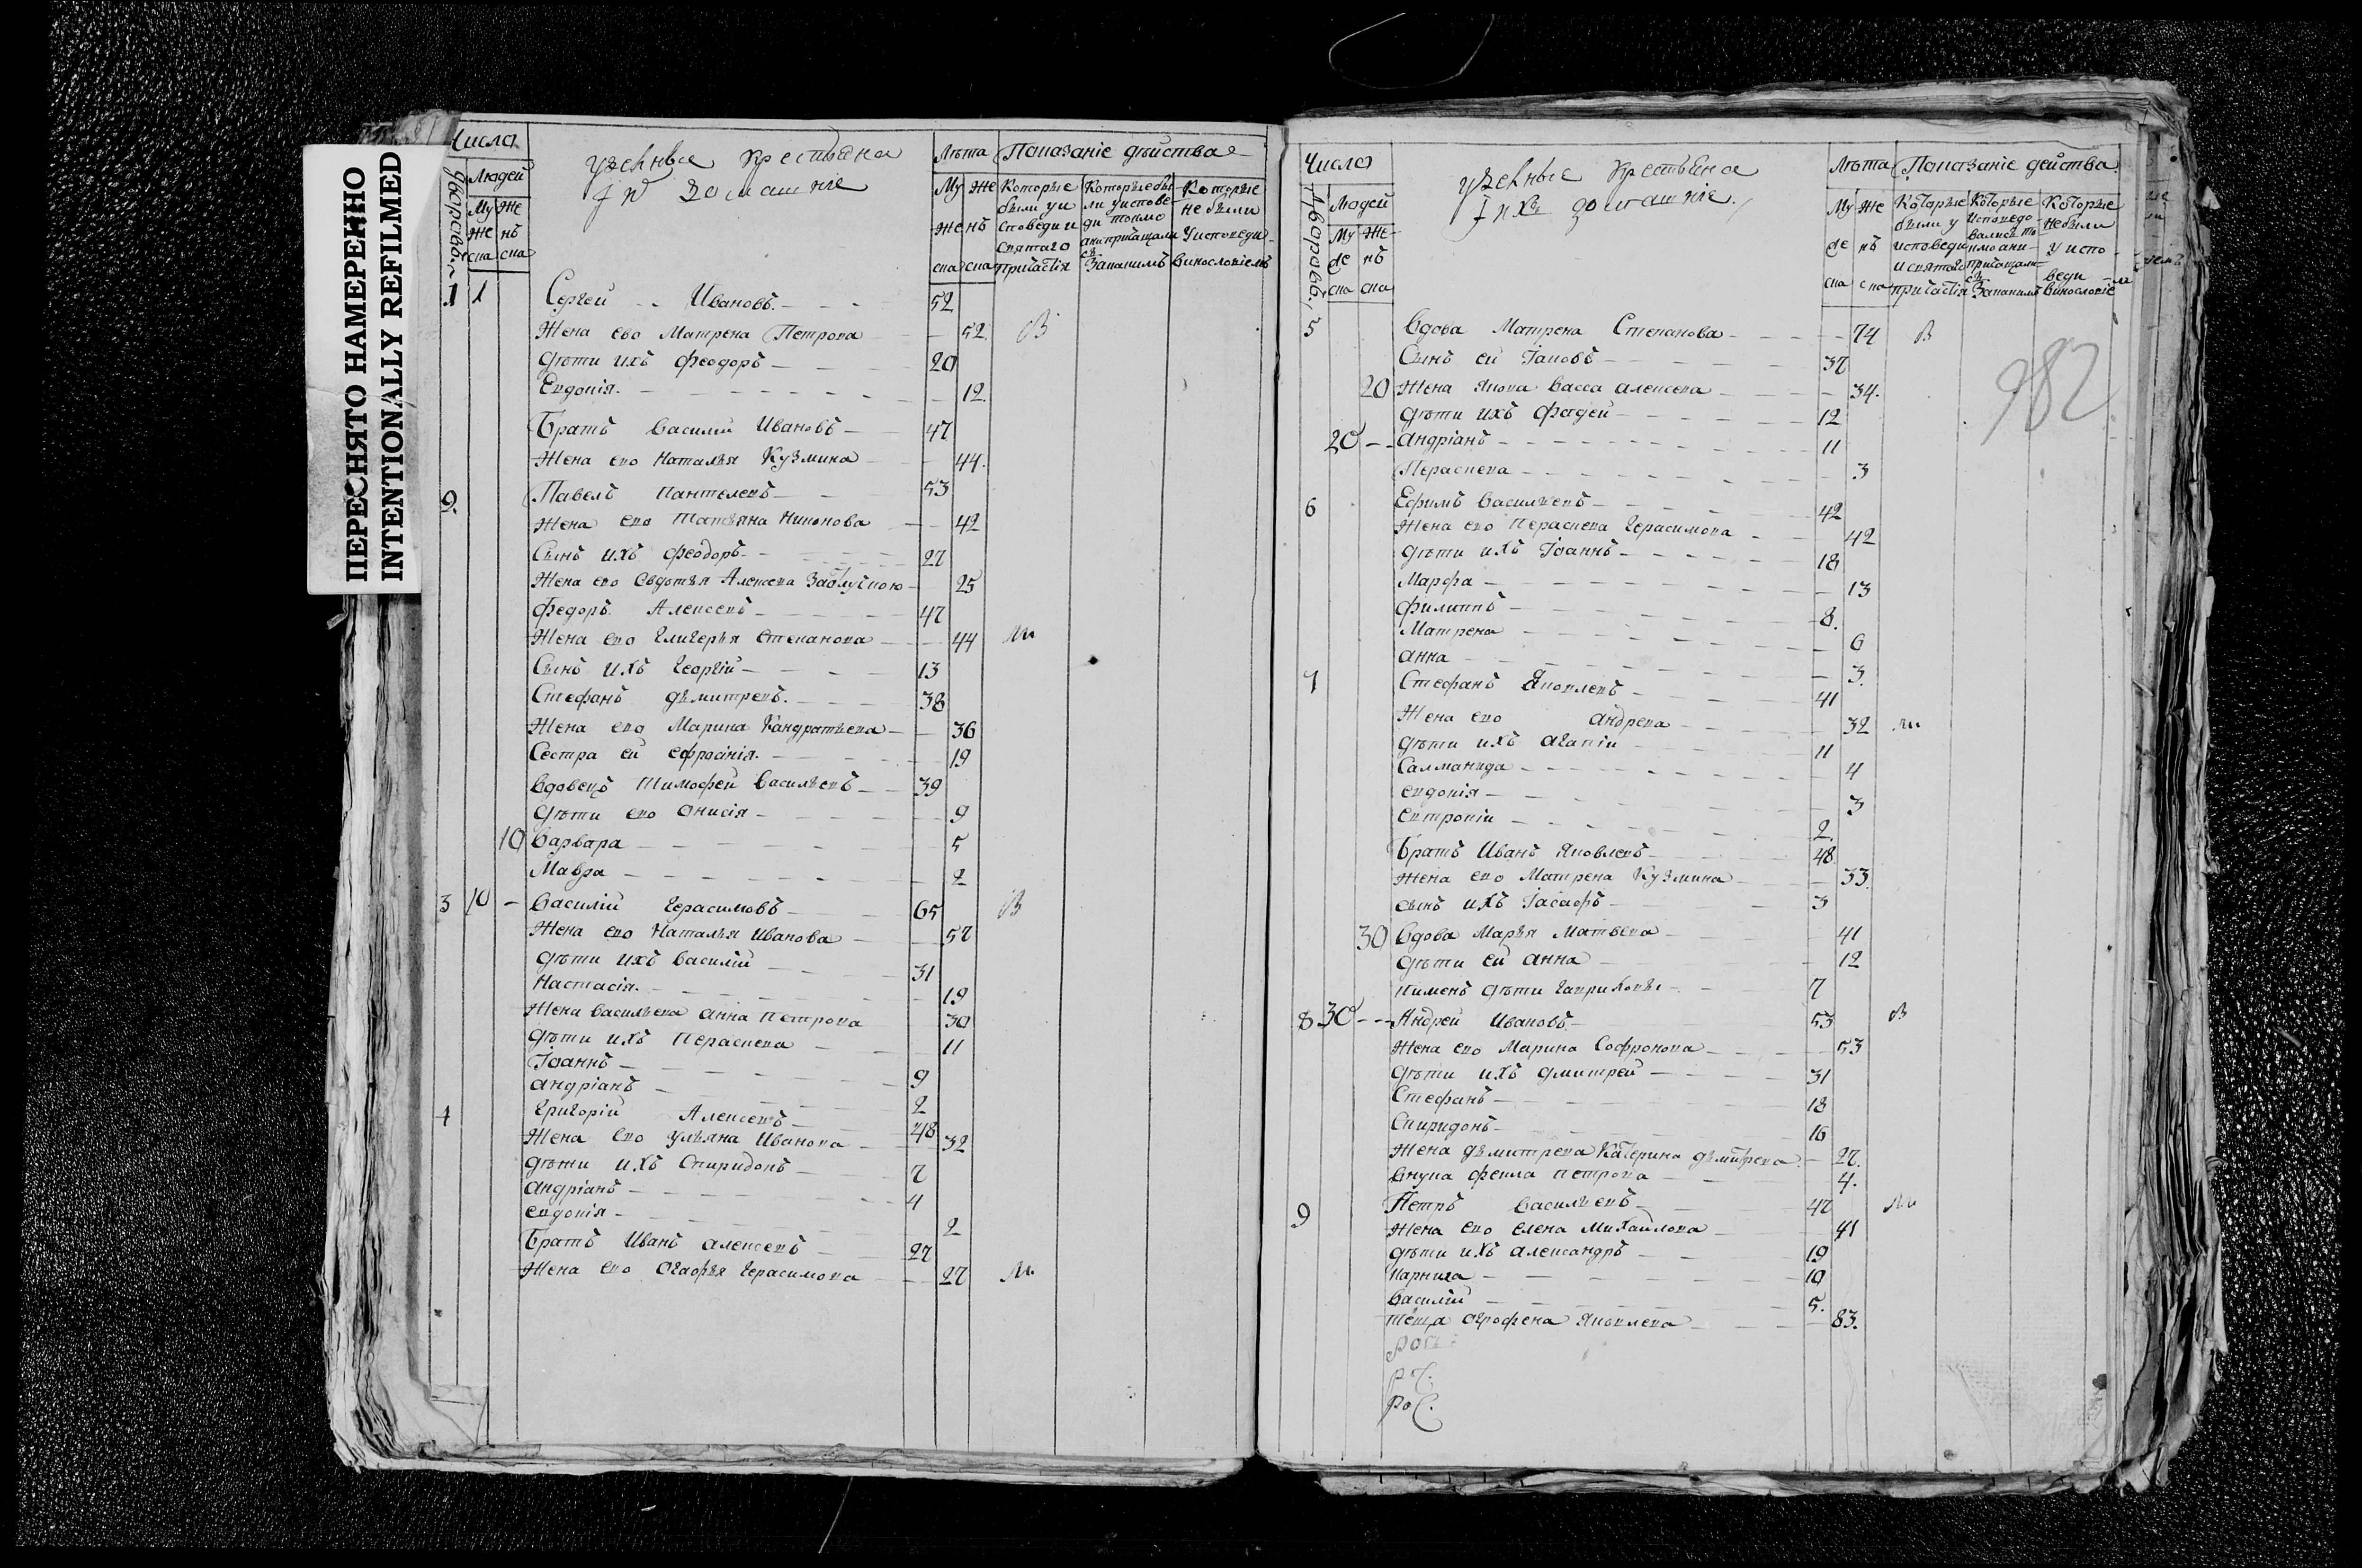 ПЕРЕСНЯТО НАМЕРЕННО
INTENTIONALLY REFILMED
Числа
Дворовъ
Людей
Му же
же нъ
ска ска
крестьяна
домашніе
Лѣта
Му же
же нъ
ска ска
Показаніе дѣйства
Которые были у исповеди и святаго причастія
Которые были у исповеди токмо а не причащались и за какимъ
Которые не были у исповеди
1 1 Сергей Ивановъ 52
Жена ево Матрена Петрова 52 В
дѣти ихъ Феодоръ 20
Евдокія 12
Братъ василий Ивановъ 47
Жена ево Наталья Кузмина 44
2 Павелъ Пантелеевъ 53
Жена ево Татьяна Никонова 42
Сынъ ихъ Феодоръ 27
Жена ево Евдотья Алексева 25
Федоръ Алексевъ 47
Жена ево Гликерья Степанова 44 М
Сынъ ихъ Георгій 13
Стефанъ Дьмитревъ 38
Жена ево Марина Кандратьева 36
Сестра ей Ефросинія 19
Вдовецъ Тимофей Васильевъ 39
Дѣти ево Анисія 9
10 Варвара 5
Мавра 2
3 10 Василій Герасимовъ 65 В
Жена ево Наталья Иванова 57
дѣти ихъ Василій 31
Настасія 19
Жена Васильева Анна Петрова 30
дѣти ихъ Пераскева 11
Іоаннъ 9
Андріанъ 2
4 Григорій Алексевъ 48
Жена ево Ульяна Иванова 32
дѣти ихъ Спиридонъ 7
Андріанъ 4
Евдокія 2
Братъ Иванъ Алексевъ 27
Жена ево Агафья Герасимова 27 М
Числа
Дворовъ
Людей
Му Же
же нъ
ска ска
крестьяна
ихъ домашніе
Лѣта
Му же
же нъ
ска ска
Показаніе действа
Которые были у исповеди и святаго причастія
Которые исповедовались токмо а не причащались и за какимъ
Которые не были у исповеди
982
5 Вдова Матрена Степанова 74 В
Сынъ ей Іаковъ 37
20 Жена Якова Васса Алексева 34
дѣти ихъ Фадей 12
20 Андріанъ 11
Пераскева 3
6 Ефимъ Васильевъ 42
Жена ево Пераскева Герасимова 42
дѣти ихъ Іоаннъ 18
Марфа 13
Филиппъ 8
Матрена 6
Анна 3
7 Стефанъ Яковлевъ 41
Жена ево Андрева 32 М
дѣти ихъ Агапій 11
Саломанида 4
Евдокія 3
Евтропій 2
Братъ Иванъ Яковлевъ 48
Жена ево Матрена Кузмина 33
сынъ ихъ Іасафъ 3
30 Вдова Марья Матвева 41
дѣти ей Анна 12
Пименъ дѣти 7
8 30 Андрей Ивановъ 53 В
Жена ево Марина Софронова 53
дѣти ихъ Дмитрей 31
Стефанъ 18
Спиридонъ 16
Жена Дьмитрева Катерина Дьмитрева 27
Внука Фекла Петрова 4
9 Петръ Васильевъ 47 М
Жена ево Елена Михайлова 41
дѣти ихъ Александръ 19
Карнила 10
Василій 5
Теща Агрофена Яковлева 83